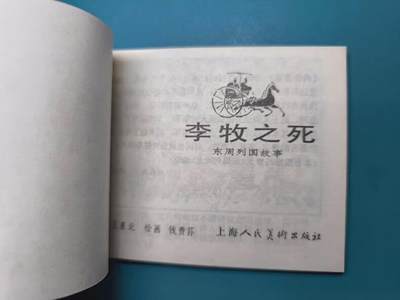 李牧之死
东周列国故事
绘画 钱贵荪 上海人民美术出版社